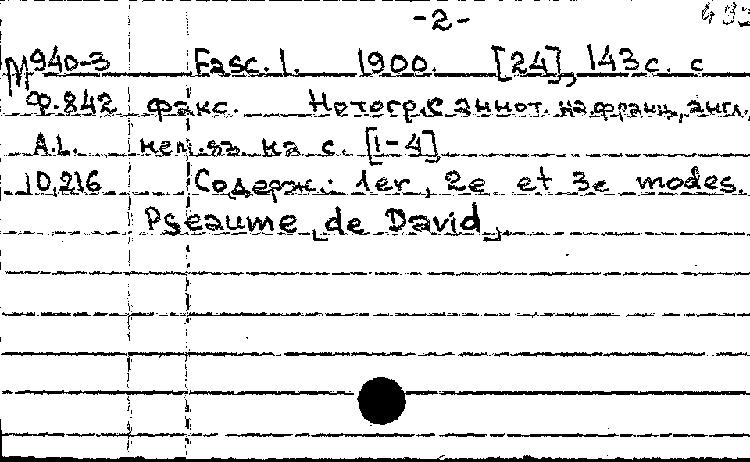 -2-
М940-3 Fasc. 1. 1900. [24], 143 с. с
Ф.842 факс. Нотогр. с аннот. на франц., англ.,
A.L. нем. яз. на с. [1-4]
10,216 Содерж.: 1er, 2e et 3e modes.
Pseaume [de David].